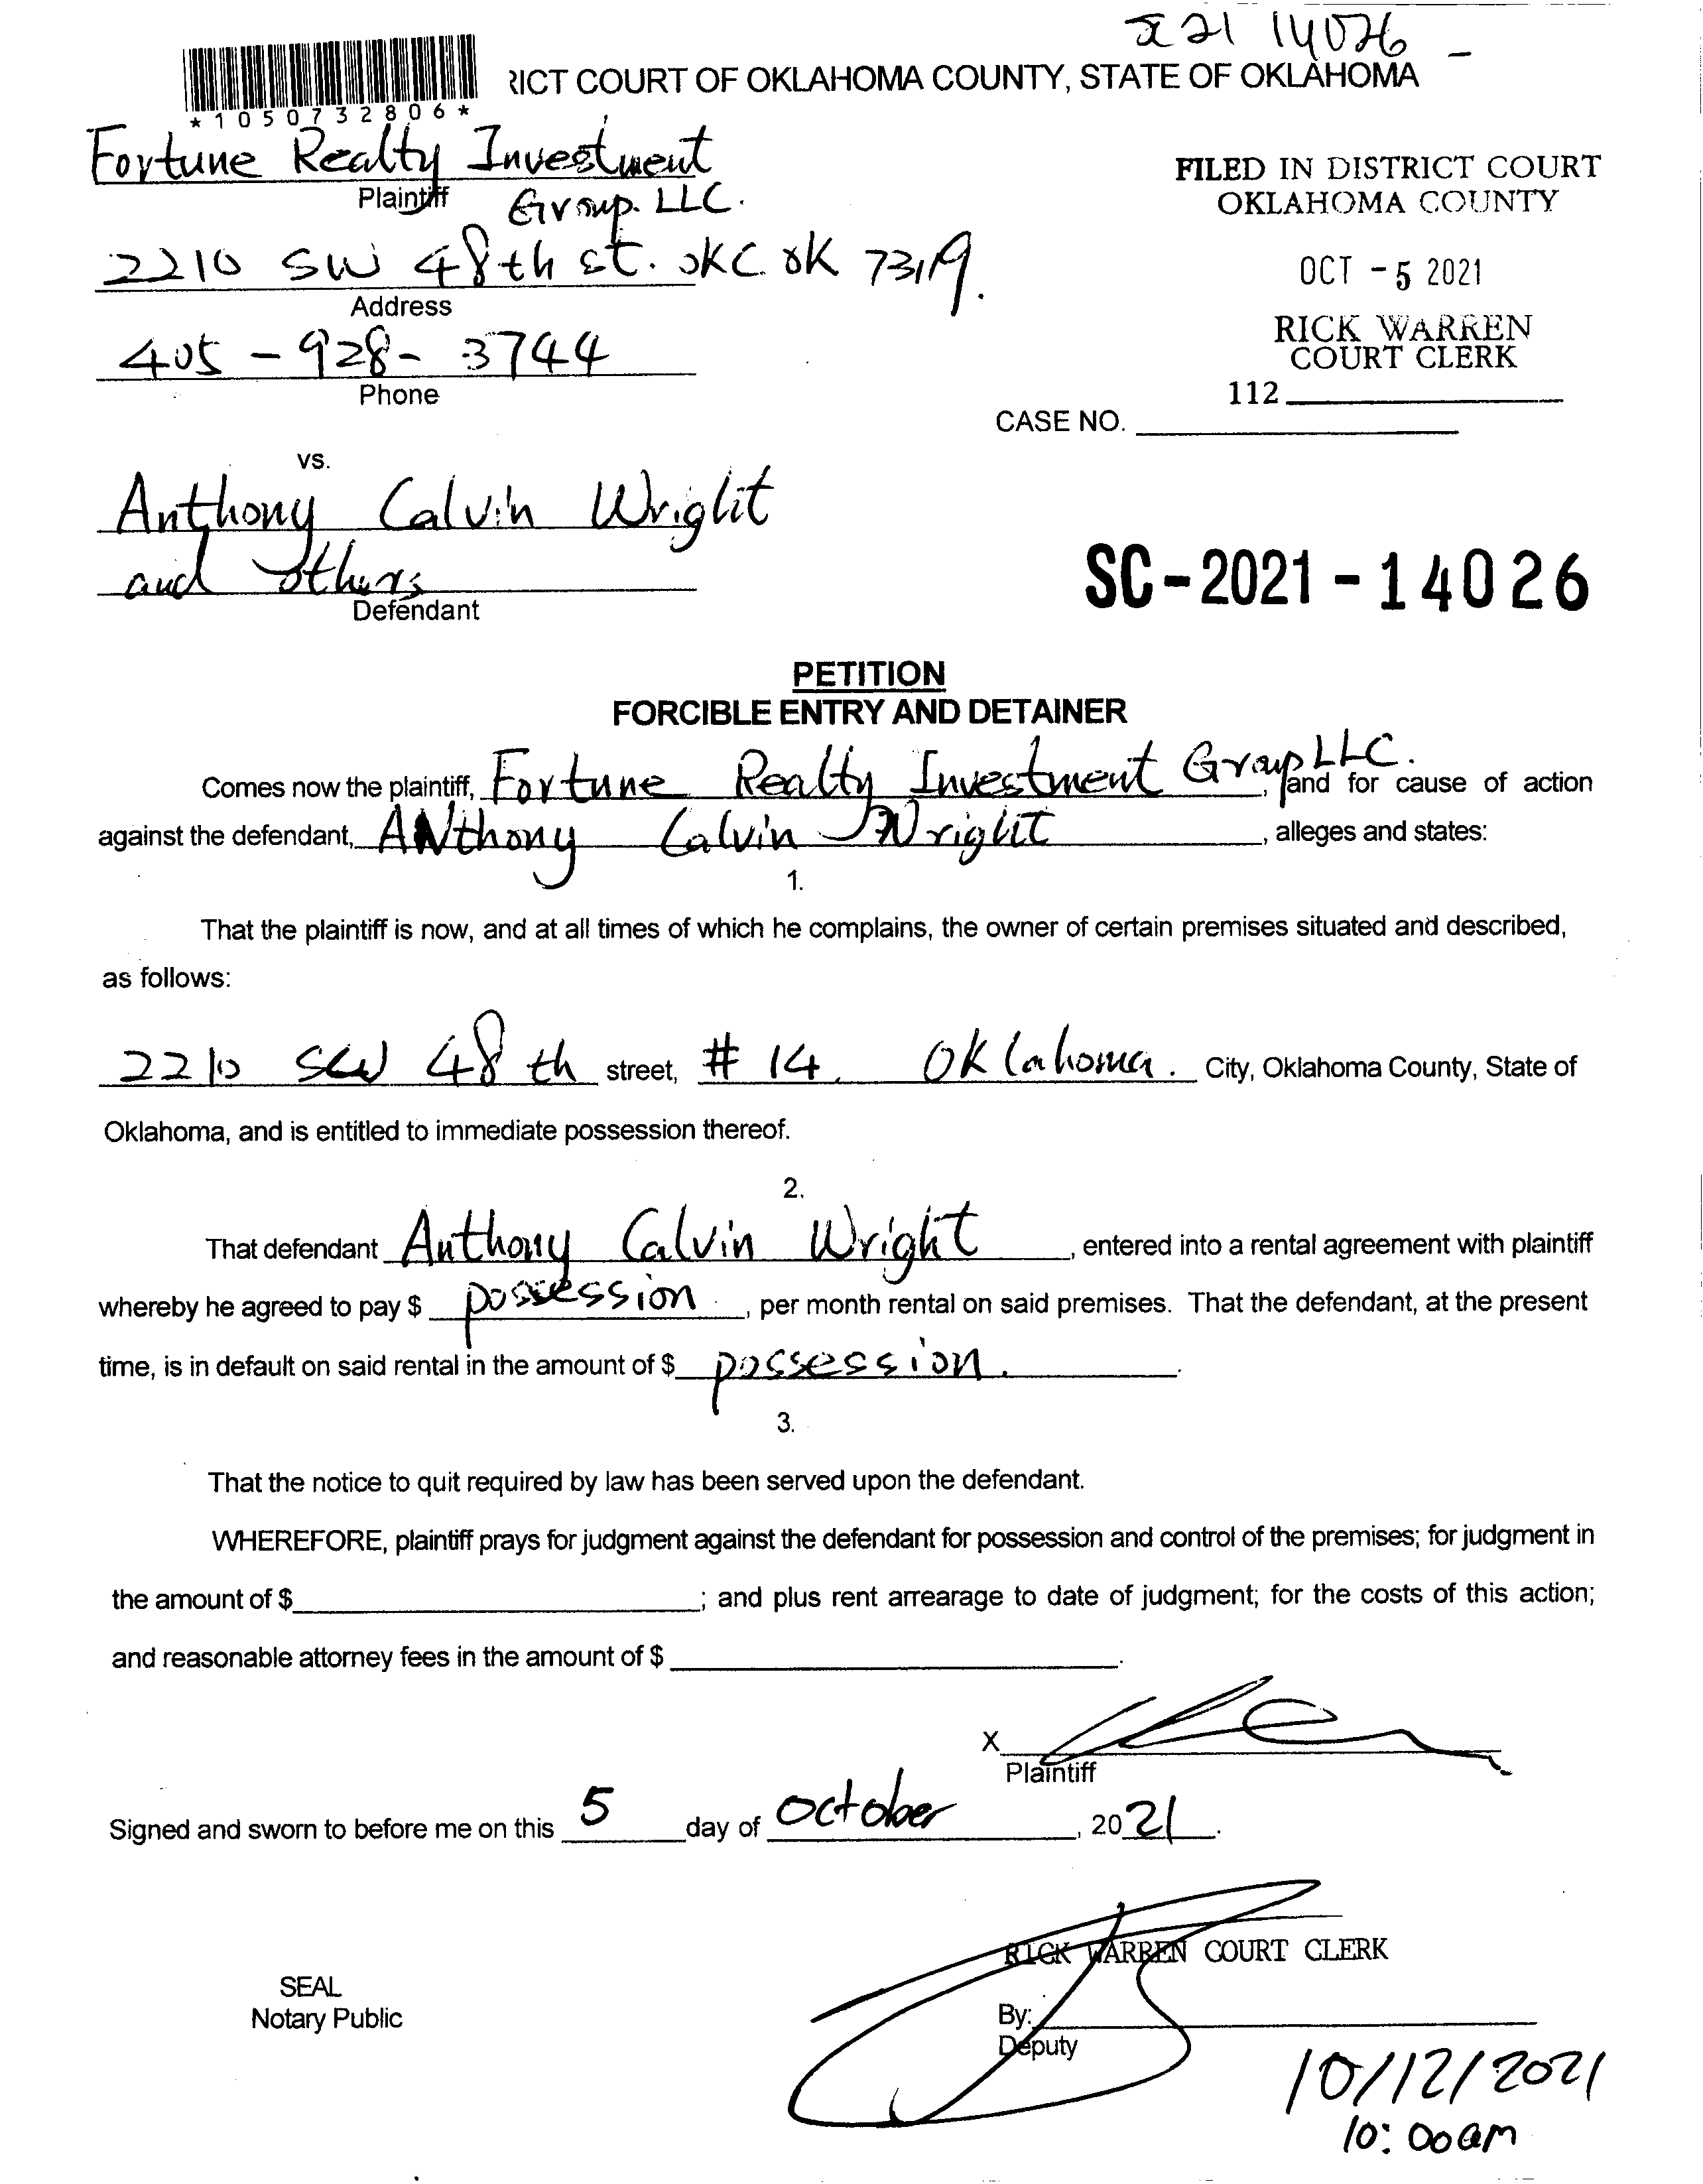 21 14026 -
RICT COURT OF OKLAHOMA COUNTY, STATE OF OKLAHOMA
*1050732806*
Fortune Realty Investment
Plaintiff Group. LLC.
2210 SW 48th st. OKC OK 73119.
Address
405-928-3744
Phone
FILED IN DISTRICT COURT
OKLAHOMA COUNTY
OCT -5 2021
RICK WARREN
COURT CLERK
112
CASE NO.
vs.
Anthony Calvin Wright
and others
Defendant
SC-2021-14026
PETITION
FORCIBLE ENTRY AND DETAINER
Comes now the plaintiff, Fortune Realty Investment Group LLC. , and for cause of action
against the defendant, ANthony Calvin Wright , alleges and states:
1.
That the plaintiff is now, and at all times of which he complains, the owner of certain premises situated and described,
as follows:
2210 SW 48 th street, # 14. Oklahoma. City, Oklahoma County, State of
Oklahoma, and is entitled to immediate possession thereof.
2.
That defendant Anthony Calvin Wright , entered into a rental agreement with plaintiff
whereby he agreed to pay $ possession , per month rental on said premises. That the defendant, at the present
time, is in default on said rental in the amount of $ possession. .
3.
That the notice to quit required by law has been served upon the defendant.
WHEREFORE, plaintiff prays for judgment against the defendant for possession and control of the premises; for judgment in
the amount of $ ; and plus rent arrearage to date of judgment; for the costs of this action;
and reasonable attorney fees in the amount of $ .
X
Plaintiff
Signed and sworn to before me on this 5 day of October , 2021 .
RICK WARREN COURT CLERK
SEAL
Notary Public
By:
Deputy
10/12/2021
10:00am